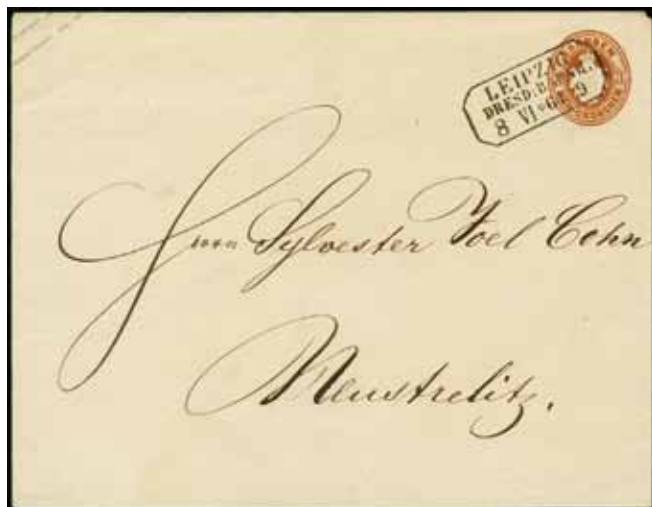 LEIPZIG
DRESD. BAHNH.
8 VI
9
Herrn Sylvester Joel Cohn
Neustrelitz.